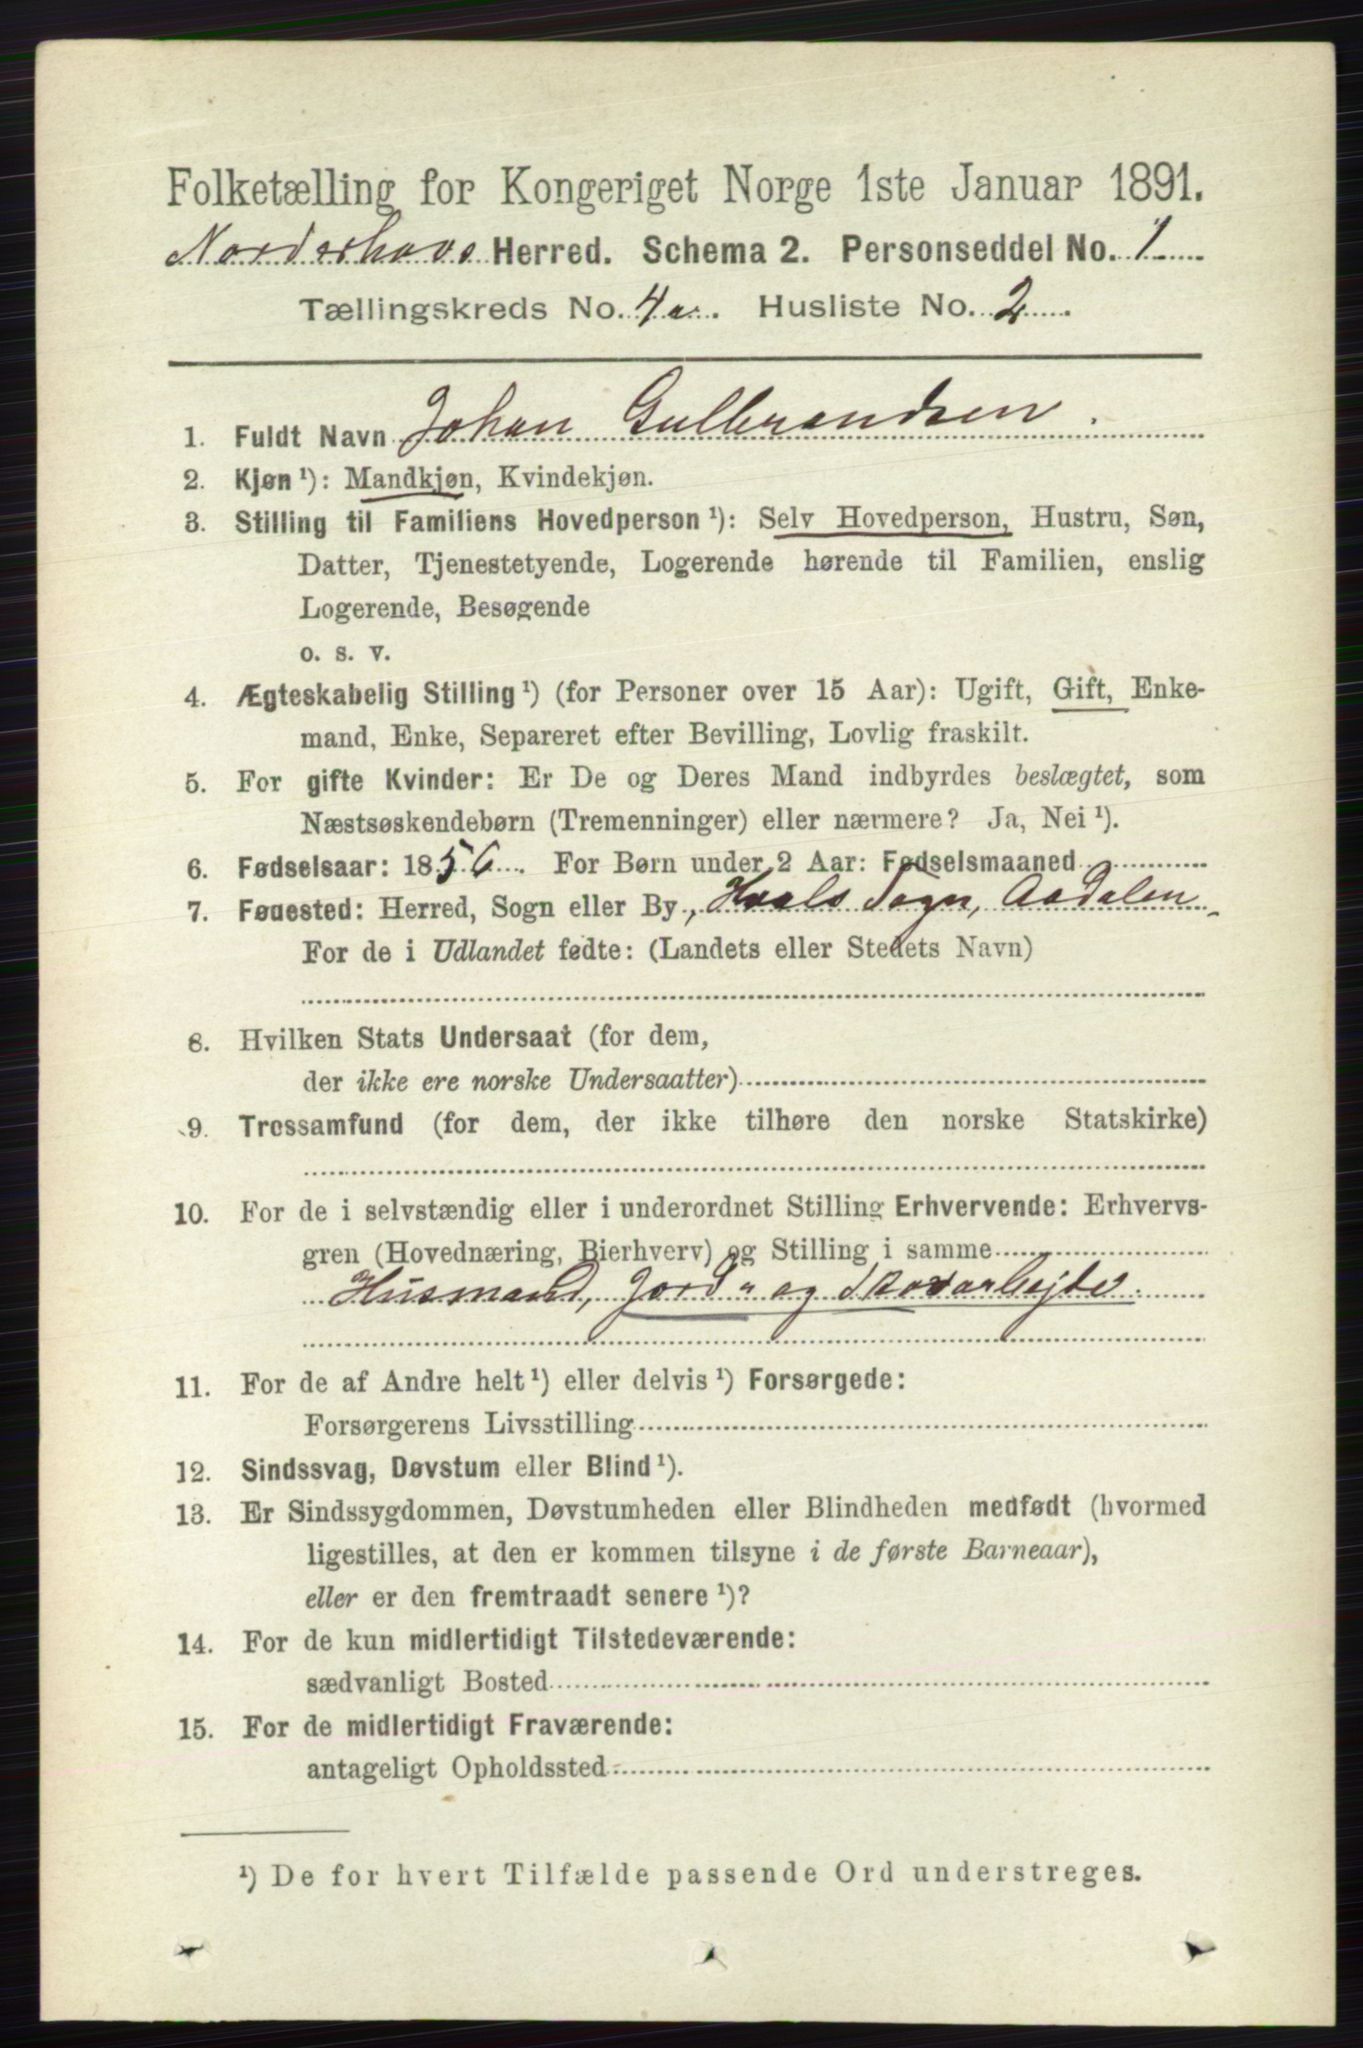 Folketælling for Kongeriget Norge 1ste Januar 1891.
Norderhovs Herred. Schema 2. Personseddel No. 1
Tællingskreds No. 4a. Husliste No. 2
1. Fuldt Navn Johan Gulbrandsen.
2. Kjøn ¹): Mandkjøn, Kvindekjøn.
3. Stilling til Familiens Hovedperson ¹): Selv Hovedperson, Hustru, Søn,
Datter, Tjenestetyende, Logerende hørende til Familien, enslig
Logerende, Besøgende
o. s. v.
4. Ægteskabelig Stilling ¹) (for Personer over 15 Aar): Ugift, Gift, Enke-
mand, Enke, Separeret efter Bevilling, Lovlig fraskilt.
5. For gifte Kvinder: Er De og Deres Mand indbyrdes beslægtet, som
Næstsøskendebørn (Tremenninger) eller nærmere? Ja, Nei ¹).
6. Fødselsaar: 1856. For Børn under 2 Aar: Fødselsmaaned
7. Fødested: Herred, Sogn eller By, Hvals Sogn, Aadalen
For de i Udlandet fødte: (Landets eller Stedets Navn)
8. Hvilken Stats Undersaat (for dem,
der ikke ere norske Undersaatter)
9. Trossamfund (for dem, der ikke tilhøre den norske Statskirke)
10. For de i selvstændig eller i underordnet Stilling Erhvervende: Erhvervs-
gren (Hovednæring, Bierhverv) og Stilling i samme
Husmand, Jord- og Skovarbejde.
11. For de af Andre helt ¹) eller delvis ¹) Forsørgede:
Forsørgerens Livsstilling
12. Sindssvag, Døvstum eller Blind ¹).
13. Er Sindssygdommen, Døvstumheden eller Blindheden medfødt (hvormed
ligestilles, at den er kommen tilsyne i de første Barneaar),
eller er den fremtraadt senere ¹)?
14. For de kun midlertidigt Tilstedeværende:
sædvanligt Bosted
15. For de midlertidigt Fraværende:
antageligt Opholdssted
¹) De for hvert Tilfælde passende Ord understreges.